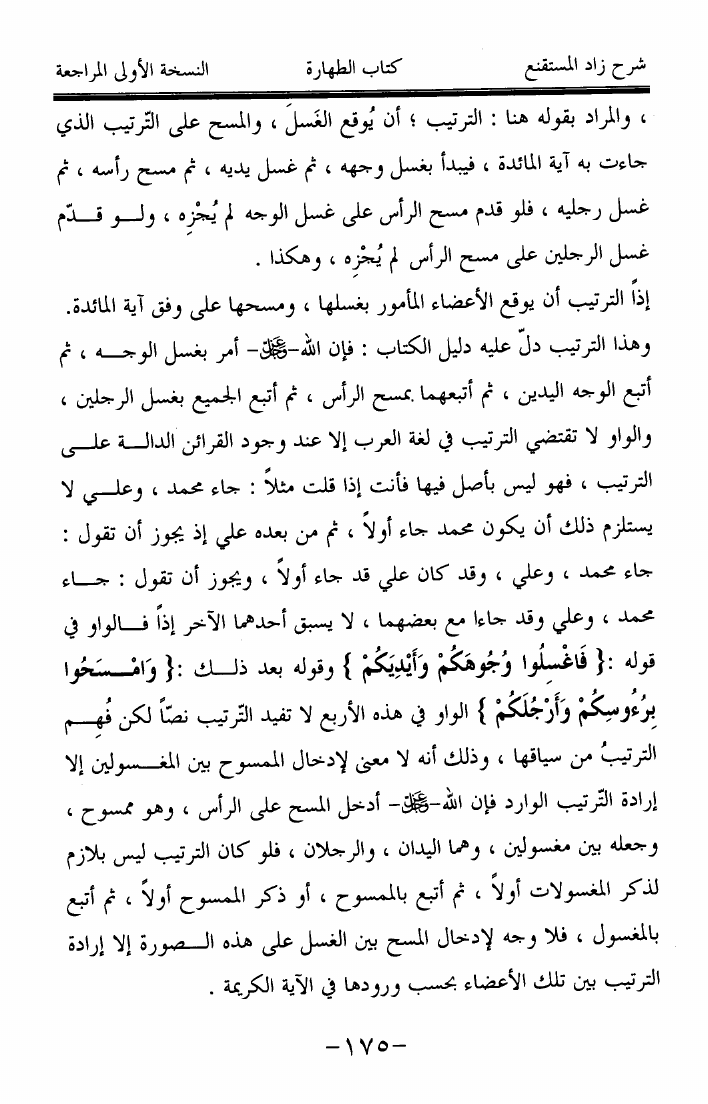 شرح زاد المستقنع كتاب الطهارة النسخة الأولى المراجعة
، والمراد بقوله هنا : الترتيب ؛ أن يُوقع الغَسلَ ، والمسح على التّرتيب الذي
جاءت به آية المائدة ، فيبدأ بغسل وجهه ، ثم غسل يديه ، ثم مسح رأسه ، ثم
غسل رجليه ، فلو قدم مسح الرأس على غسل الوجه لم يُجْزِه ، ولـــو قـــدّم
غسل الرجلين على مسح الرأس لم يُجْزِه ، وهكذا .
إذاً الترتيب أن يوقع الأعضاء المأمور بغسلها ، ومسحها على وفق آية المائدة.
وهذا الترتيب دلّ عليه دليل الكتاب : فإن الله-عز وجل- أمر بغسل الوجـــه ، ثم
أتبع الوجه اليدين ، ثم أتبعهما بمسح الرأس ، ثم أتبع الجميع بغسل الرجلين ،
والواو لا تقتضي الترتيب في لغة العرب إلا عند وجود القرائن الدالـــة علـــى
الترتيب ، فهو ليس بأصل فيها فأنت إذا قلت مثلاً : جاء محمد ، وعلـــي لا
يستلزم ذلك أن يكون محمد جاء أولاً ، ثم من بعده علي إذ يجوز أن تقول :
جاء محمد ، وعلي ، وقد كان علي قد جاء أولاً ، ويجوز أن تقول : جـــاء
محمد ، وعلي وقد جاءا مع بعضهما ، لا يسبق أحدهما الآخر إذاً فـــالواو في
قوله :{ فَاغْسِلُوا وُجُوهَكُمْ وَأَيْدِيَكُمْ } وقوله بعد ذلـــك :{ وَامْـــسَحُوا
بِرُءُوسِكُمْ وَأَرْجُلَكُمْ } الواو في هذه الأربع لا تفيد التّرتيب نصّاً لكن فُهِـــم
الترتيبُ من سياقها ، وذلك أنه لا معنى لإدخال الممسوح بين المغـــسولين إلا
إرادة التّرتيب الوارد فإن الله-عز وجل- أدخل المسح على الرأس ، وهو ممسوح ،
وجعله بين مغسولين ، وهما اليدان ، والرجلان ، فلو كان الترتيب ليس بلازم
لذكر المغسولات أولاً ، ثم أتبع بالممسوح ، أو ذكر الممسوح أولاً ، ثم أتبع
بالمغسول ، فلا وجه لإدخال المسح بين الغسل على هذه الـــصورة إلا إرادة
الترتيب بين تلك الأعضاء بحسب ورودها في الآية الكريمة .
-١٧٥-